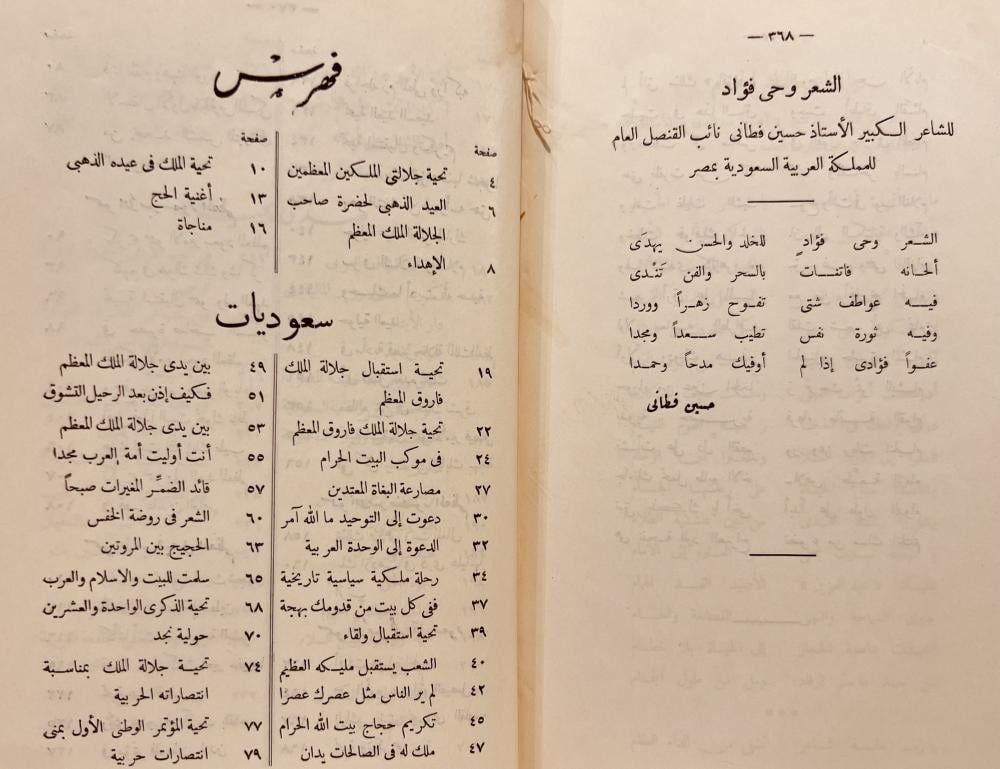 — ٣٦٨ —
الشعر وحى فؤاد
للشاعر الكبير الأستاذ حسين فطانى نائب القنصل العام
للمملكة العربية السعودية بمصر
الشعر وحى فؤادٍ للخلد والحسن يهدى
ألحانه فاتنات بالسحر والفن تَنْدى
فيه عواطف شتى تفوح زهراً ووردا
وفيه ثورة نفس تطيب سعداً ومجدا
عفواً فؤادى إذا لم أوفيك مدحاً وحمدا
حسين فطانى
فهرس
صفحة
٤ تحية جلالتى الملكين المعظمين
٦ العيد الذهبى لحضرة صاحب
الجلالة الملك المعظم
٨ الإهداء
صفحة
١٠ تحية الملك فى عيده الذهبى
١٣ أغنية الحج
١٦ مناجاة
سعوديات
١٩ تحية استقبال جلالة الملك
فاروق المعظم
٢٢ تحية جلالة الملك فاروق المعظم
٢٤ فى موكب البيت الحرام
٢٧ مصارعة البغاة المعتدين
٣٠ دعوت إلى التوحيد ما الله آمر
٣٢ الدعوة إلى الوحدة العربية
٣٤ رحلة ملكية سياسية تاريخية
٣٧ ففى كل بيت من قدومك بهجة
٣٩ تحية استقبال ولقاء
٤٠ الشعب يستقبل مليكه العظيم
٤٢ لم ير الناس مثل عصرك عصرا
٤٥ تكريم حجاج بيت الله الحرام
٤٧ ملك له فى الصالحات يدان
٤٩ بين يدى جلالة الملك المعظم
٥١ فكيف إذن بعد الرحيل التشوق
٥٣ بين يدى جلالة الملك المعظم
٥٥ أنت أوليت أمة العرب مجدا
٥٧ قائد الضمِّر المغيرات صبحاً
٦٠ الشعر فى روضة الخفس
٦٣ الحجيج بين المروتين
٦٥ سلمت للبيت والاسلام والعرب
٦٨ تحية الذكرى الواحدة والعشرين
٧٠ حولية نجد
٧٤ تحية جلالة الملك بمناسبة
انتصاراته الحربية
٧٧ تحية المؤتمر الوطنى الأول بمنى
٧٩ انتصارات حربية